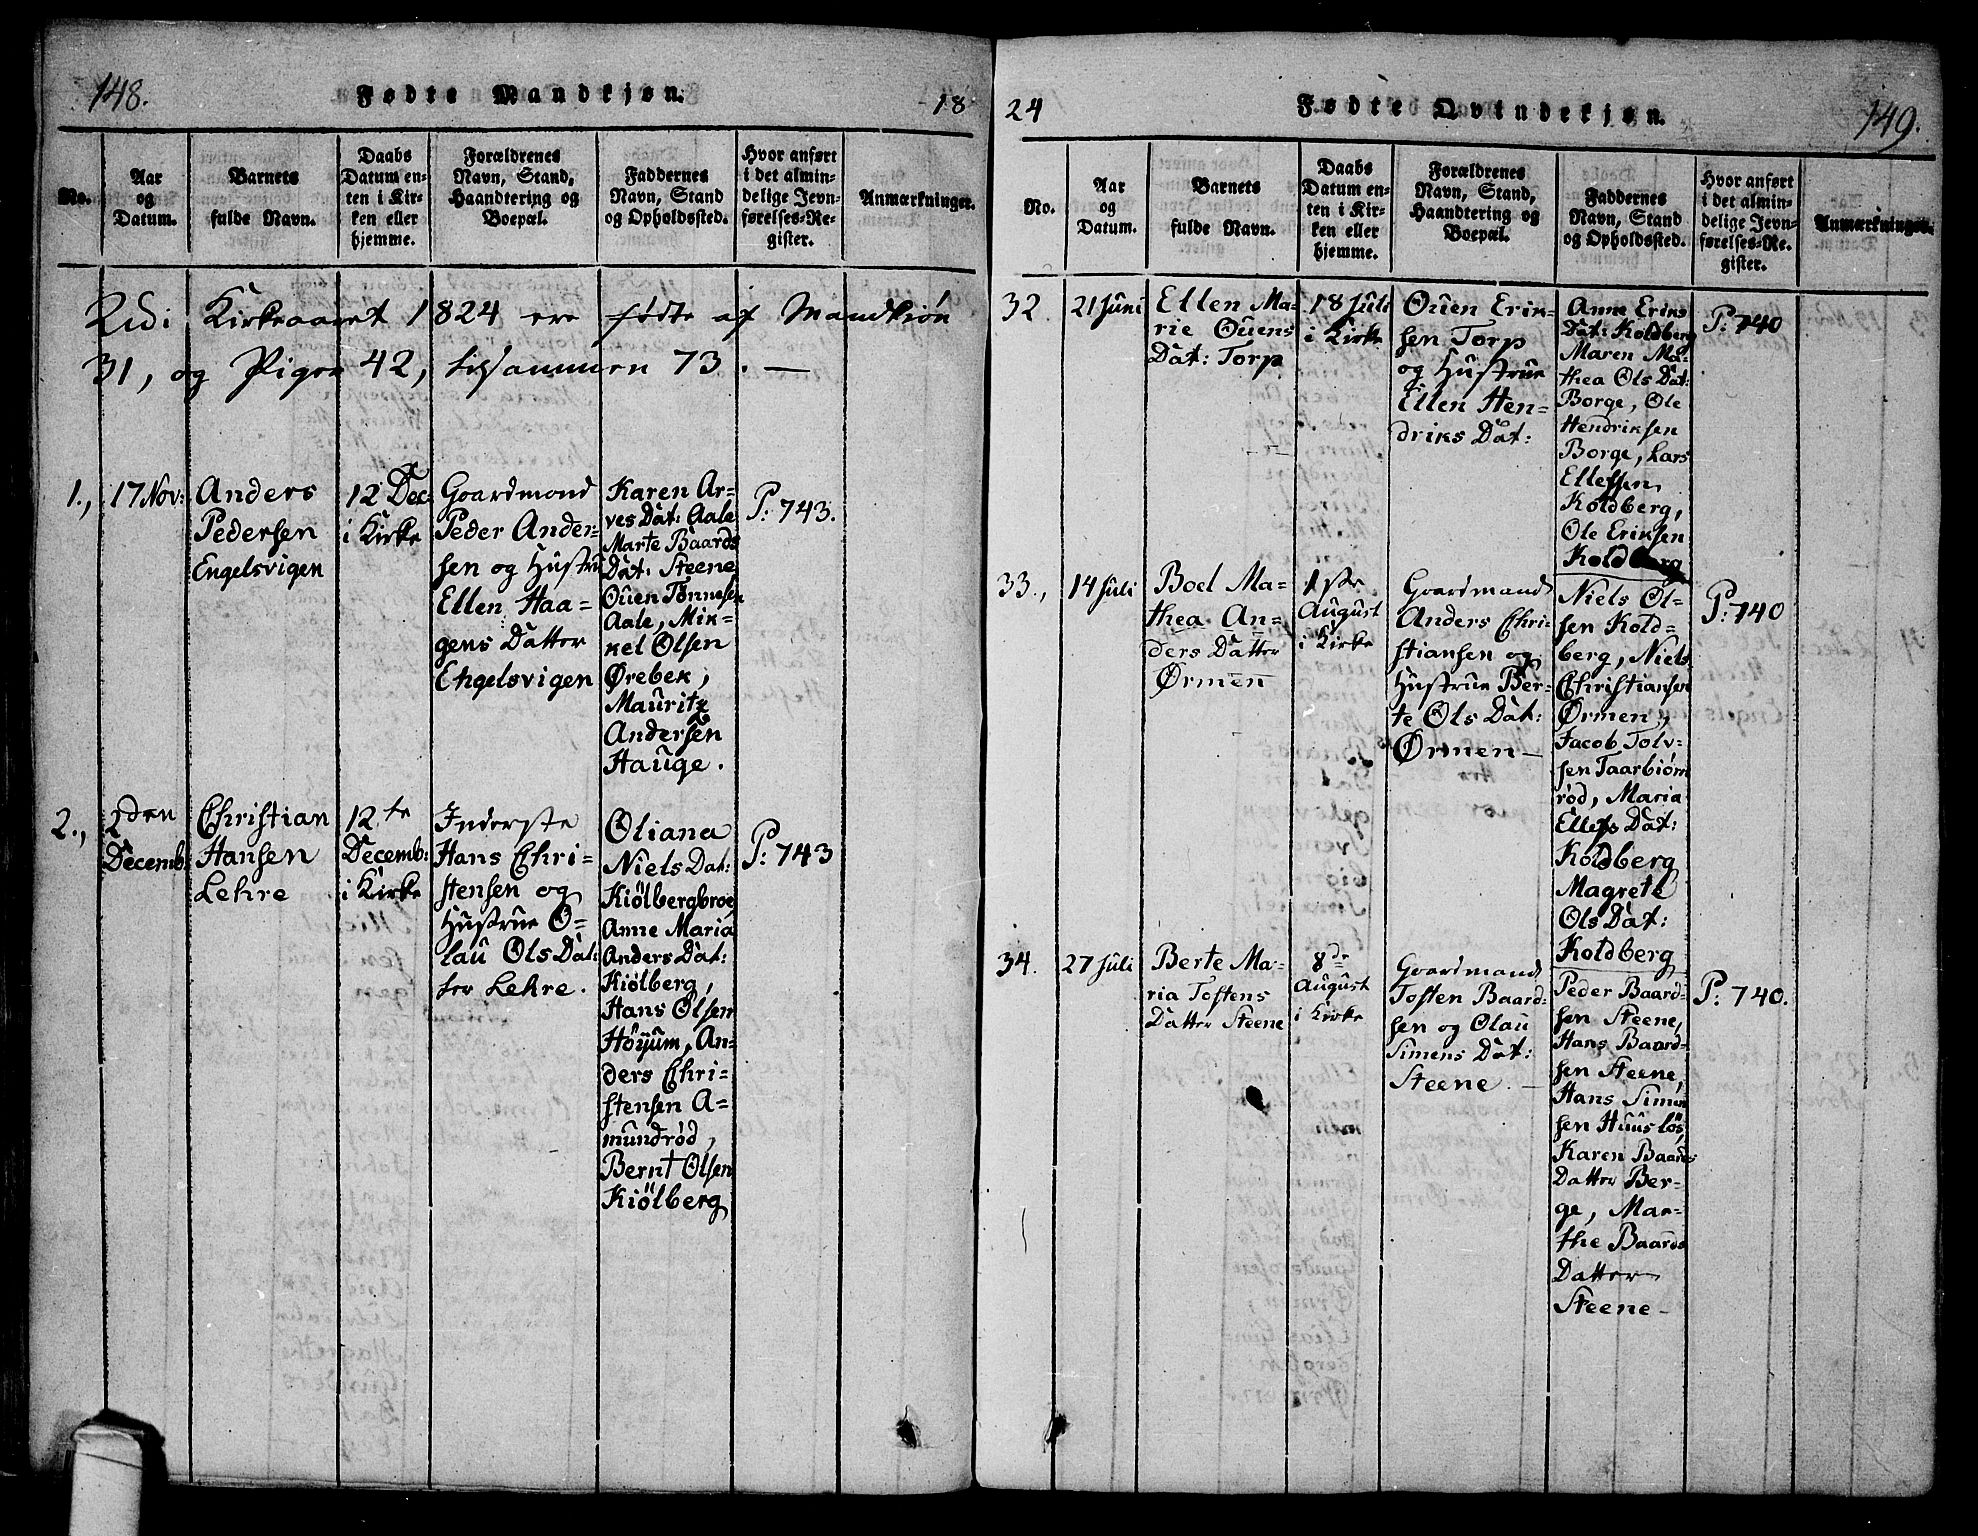 148.
Fødte Mandkjøn.
18
No.
Aar
og
Datum.
Barnets
fulde Navn.
Daabs
Datum en-
ten i Kir-
ken eller
hjemme.
Forældrenes
Navn, Stand,
Haandtering og
Boepæl.
Faddernes
Navn, Stand
og Opholdssted.
Hvor anført
i det almin-
delige Jevn-
førelses-Re-
gister.
Anmærkninger.
Udi Kirkeaaret 1824 ere fødte af Mandkiøn
31, og Piger 42, tilsammen 73. —
1.,
17 Nov:
Anders
Pedersen
Engelsvigen
12 Dec:
i Kirke
Gaardmand
Peder Ander-
sen og Hustru
Ellen Haa-
gens Datter
Engelsvigen
Karen Ar-
ves Dat: Aale
Marte Baards
Dat: Steene
Ouen Tønnesen
Aale, Mik-
kel Olsen
Ørebek,
Mauritz
Andersen
Hauge.
P: 743.
2.,
2den
Decemb:
Christian
Hansen
Lehre
12te
Decemb:
i Kirke
Inderste
Hans Chri-
stensen og
Hustrue O-
lau Ols Dat-
ter Lehre.
Oliana
Niels Dat:
Kiølbergbroe,
Anne Maria
Anders Dat:
Kiølberg,
Hans Olsen
Høyum, An-
ders Chri-
stensen A-
mundrød,
Bernt Olsen
Kiølberg
P: 743
24
Fødte Qvindekjøn.
149.
No.
Aar
og
Datum.
Barnets
fulde Navn.
Daabs
Datum en-
ten i Kir-
ken eller
hjemme.
Forældrenes
Navn, Stand,
Haandtering og
Boepæl.
Faddernes
Navn, Stand
og Opholdssted.
Hvor anført
i det almin-
delige Jevn-
førelses-Re-
gister.
Anmærkninger.
32.
21 Juni
Ellen Ma-
rie Ouens
Dat: Torp
18 Juli
i Kirke
Ouen Erik-
sen Torp
og Hustrue
Ellen Hen-
driks Dat:
Anne Eriks
Dat: Koldberg
Maren Ma-
thea Ols Dat:
Borge, Ole
Hendriksen
Borge, Lars
Ellefsen
Koldberg,
Ole Eriksen
Koldberg
P: 740
33.,
14 Juli
Boel Ma-
thea An-
ders Datter
Ørmen
1ste
August
i Kirke
Gaardmand
Anders Chri-
stiansen og
Hustrue Ber-
te Ols Dat:
Ørmen —
Niels Ol-
sen Kold-
berg, Niels
Christiansen
Ørmen,
Jacob Tolv-
sen Taarbiørn
rød, Maria
Ellefs Dat:
Koldberg
Magrete
Ols Dat:
Koldberg
P: 740
34.
27 Juli
Berte Ma-
ria Tostens
Datter Steene
8de
August
i Kirke
Gaardmand
Tosten Baard-
sen og Olau
Simens Dat:
Steene. —
Peder Baard-
sen Steene,
Hans Baard-
sen Steene,
Hans Simen
sen Huusløs,
Karen Baards
Datter Ber-
ge, Mar-
the Baards
Datter
Steene —
P: 740.